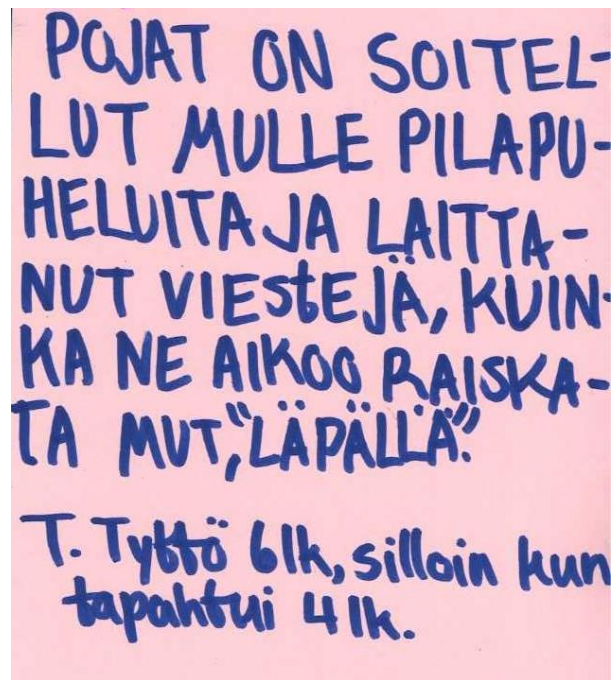 POJAT ON SOITEL-
LUT MULLE PILAPU-
HELUITA JA LAITTA-
NUT VIESTEJÄ, KUIN-
KA NE AIKOO RAISKA-
TA MUT, "LÄPÄLLÄ".
T. Tyttö 6lk, silloin kun
tapahtui 4 lk.